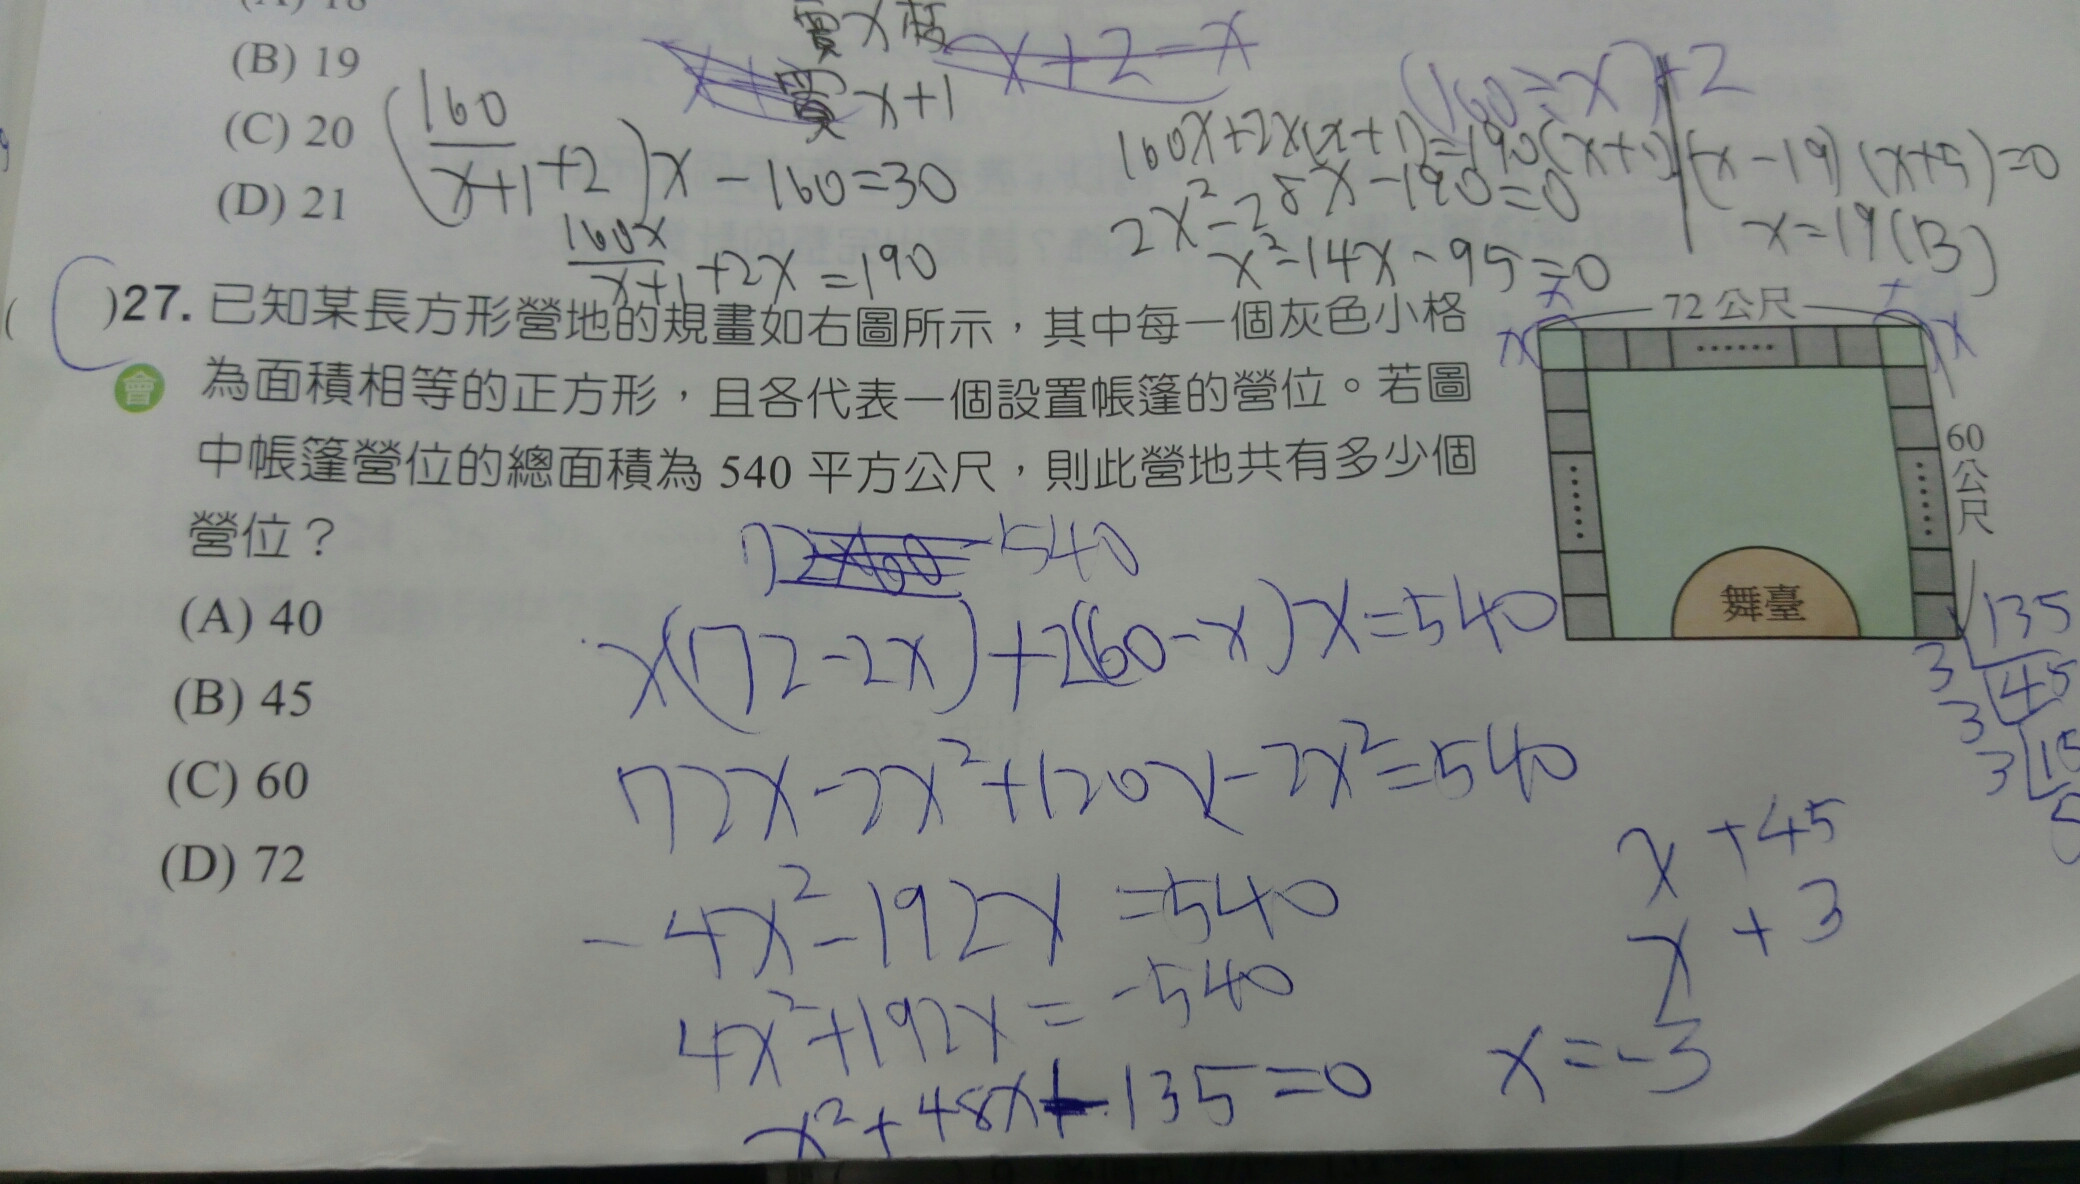 (B) 19
(C) 20
(D) 21
賣 x
買 x+1
x+2-x
(160÷x)+2
(160/(x+1)+2)x-160=30
160x/(x+1)+2x=190
160x+2x(x+1)=190(x+1)
2x²-28x-190=0
x²-14x-95=0
(x-19)(x+5)=0
x=19(B)
( )27. 已知某長方形營地的規畫如右圖所示，其中每一個灰色小格
會 為面積相等的正方形，且各代表一個設置帳篷的營位。若圖
中帳篷營位的總面積為 540 平方公尺，則此營地共有多少個
營位？
(A) 40
(B) 45
(C) 60
(D) 72
x
x
72 公尺
x
x
......
60公尺
舞臺
72×60-540
x(72-2x)+2(60-x)x=540
72x-2x²+120x-2x²=540
-4x²-192x=540
4x²+192x=-540
x²+48x+135=0
135
3 45
3 15
3
x +45
x +3
x=-3